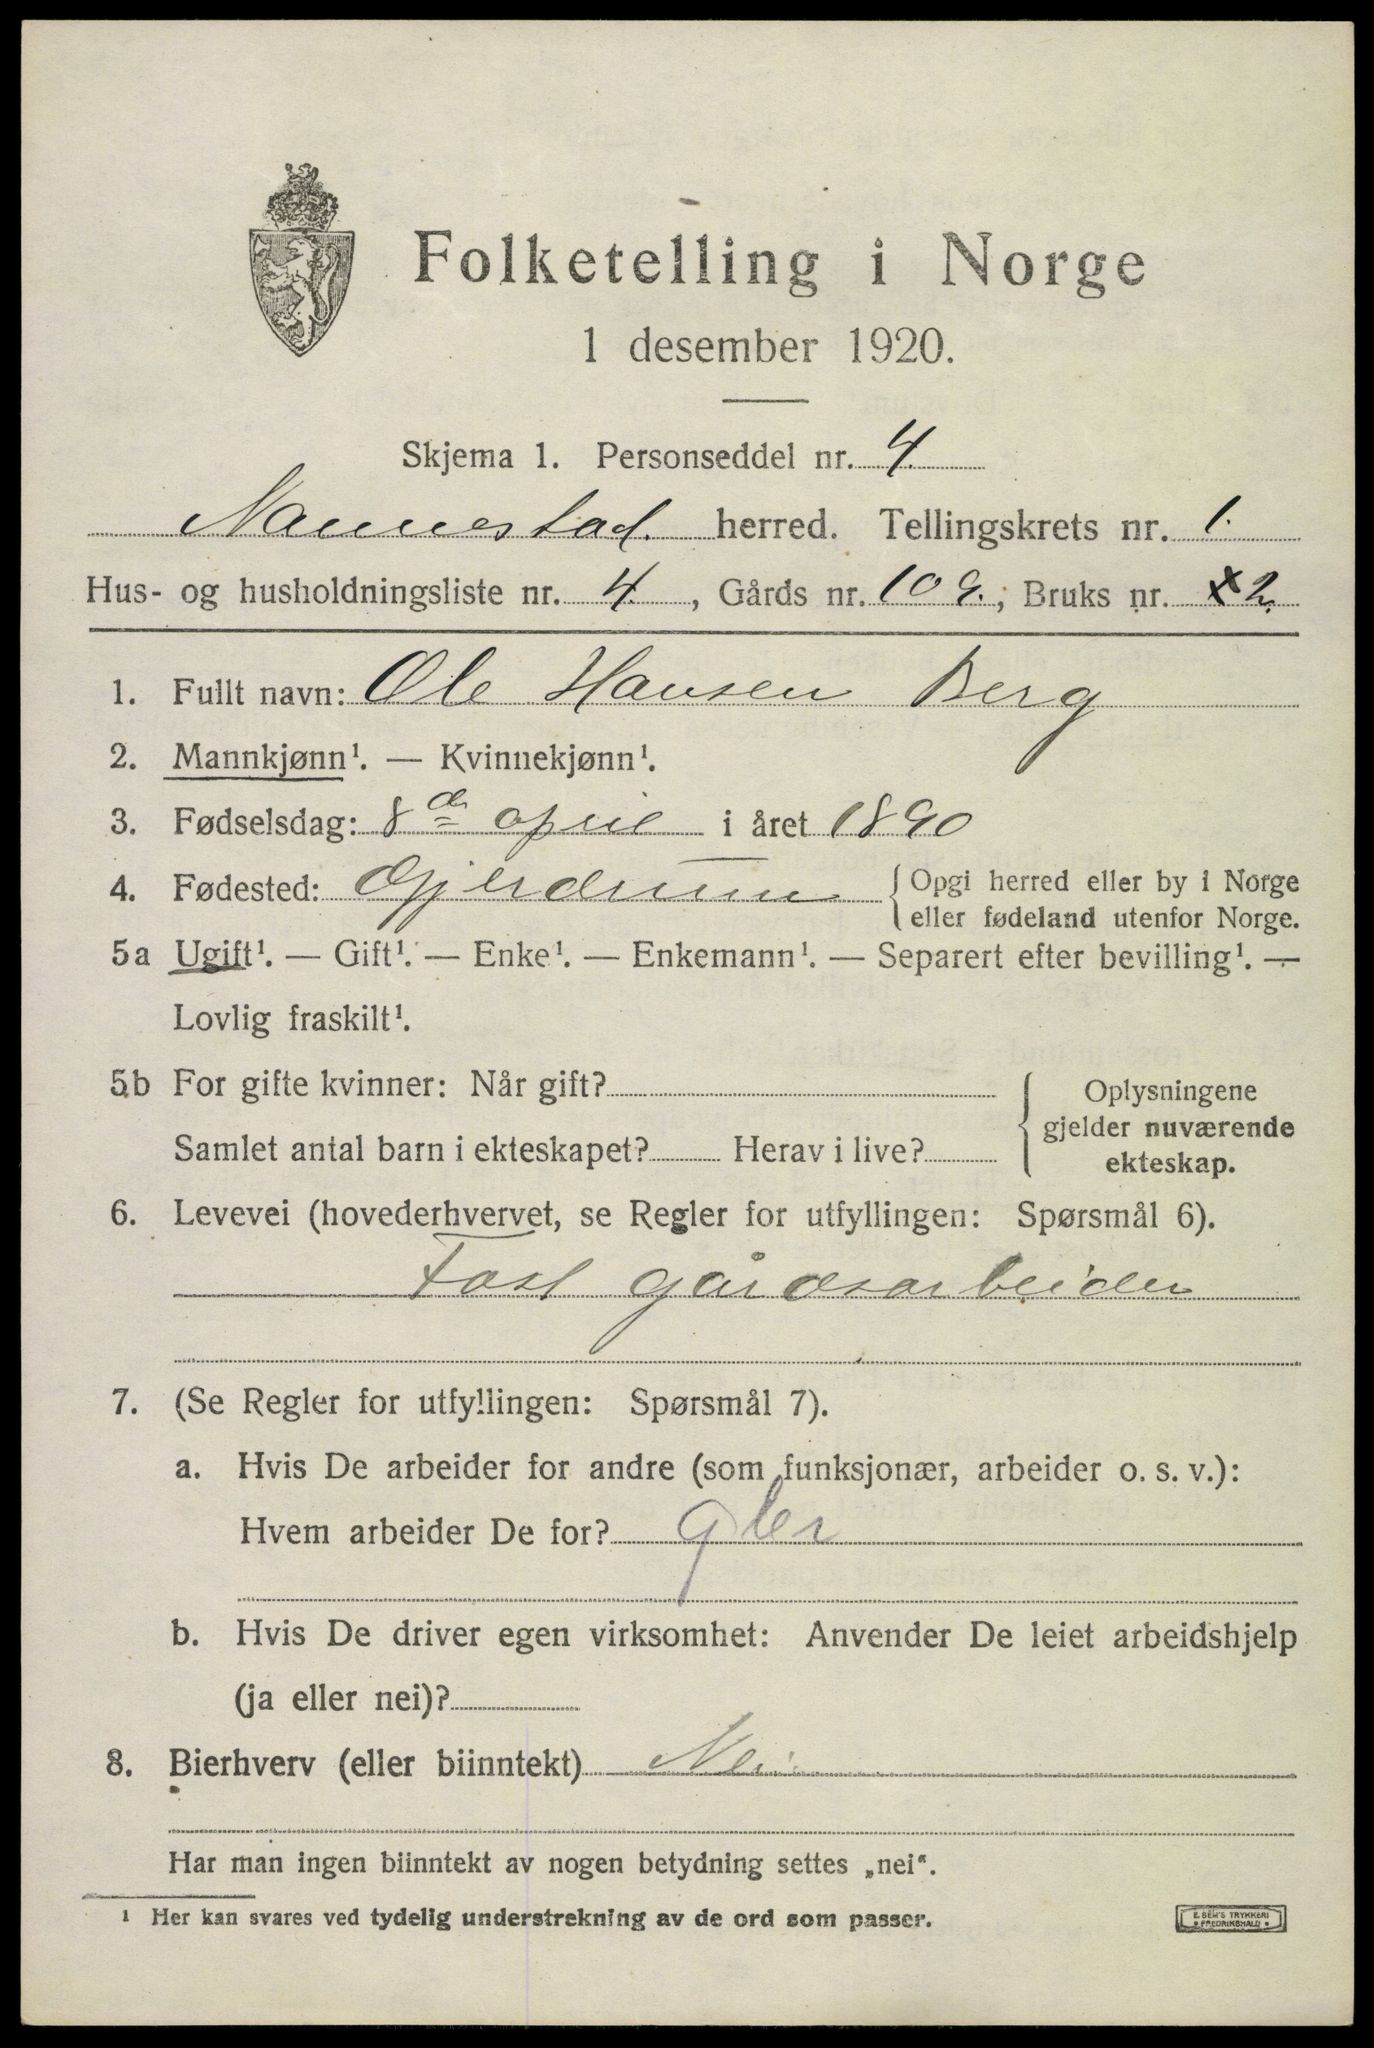 Folketelling i Norge
1 desember 1920.
Skjema 1. Personseddel nr. 4.
Nannestad. herred. Tellingskrets nr. 1.
Hus- og husholdningsliste nr. 4. , Gårds nr. 109. , Bruks nr. 2.
1. Fullt navn: Ole Hansen Berg
2. Mannkjønn¹. — Kvinnekjønn¹.
3. Fødselsdag: 8de april i året 1890
4. Fødested: Gjerdrum { Opgi herred eller by i Norge
eller fødeland utenfor Norge.
5a Ugift¹. — Gift¹. — Enke¹. — Enkemann¹. — Separert efter bevilling¹. —
Lovlig fraskilt¹.
5b For gifte kvinner: Når gift? { Oplysningene
gjelder nuværende
Samlet antal barn i ekteskapet? Herav i live? ekteskap.
6. Levevei (hovederhvervet, se Regler for utfyllingen: Spørsmål 6).
Fast gårdsarbeider
7. (Se Regler for utfyllingen: Spørsmål 7).
a. Hvis De arbeider for andre (som funksjonær, arbeider o. s. v.):
Hvem arbeider De for?
b. Hvis De driver egen virksomhet: Anvender De leiet arbeidshjelp
(ja eller nei)?
8. Bierhverv (eller biinntekt) Nei
Har man ingen biinntekt av nogen betydning settes „nei“.
¹ Her kan svares ved tydelig understrekning av de ord som passer.
E. SEM'S TRYKKERI
• FREDRIKSHALD •